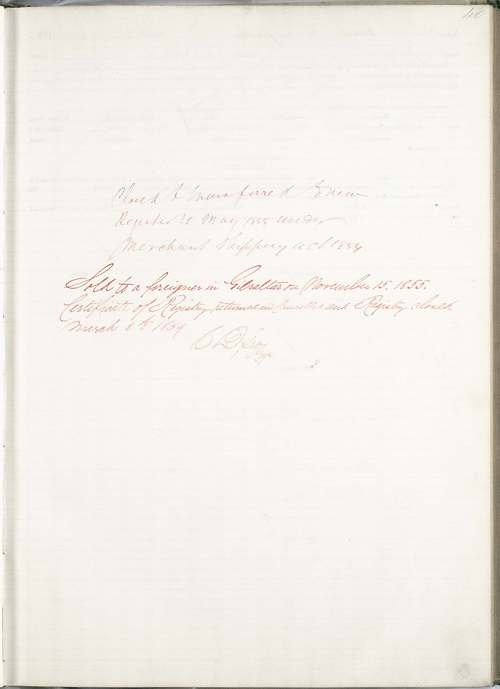 Closed & transferred to new
Register 31 May 1855 under
Merchant Shipping Act 1854
Sold to a foreigner in Gibralter on November 15. 1855.
Certificate of Registry returned and cancelled and Registry closed
March 6th 1859